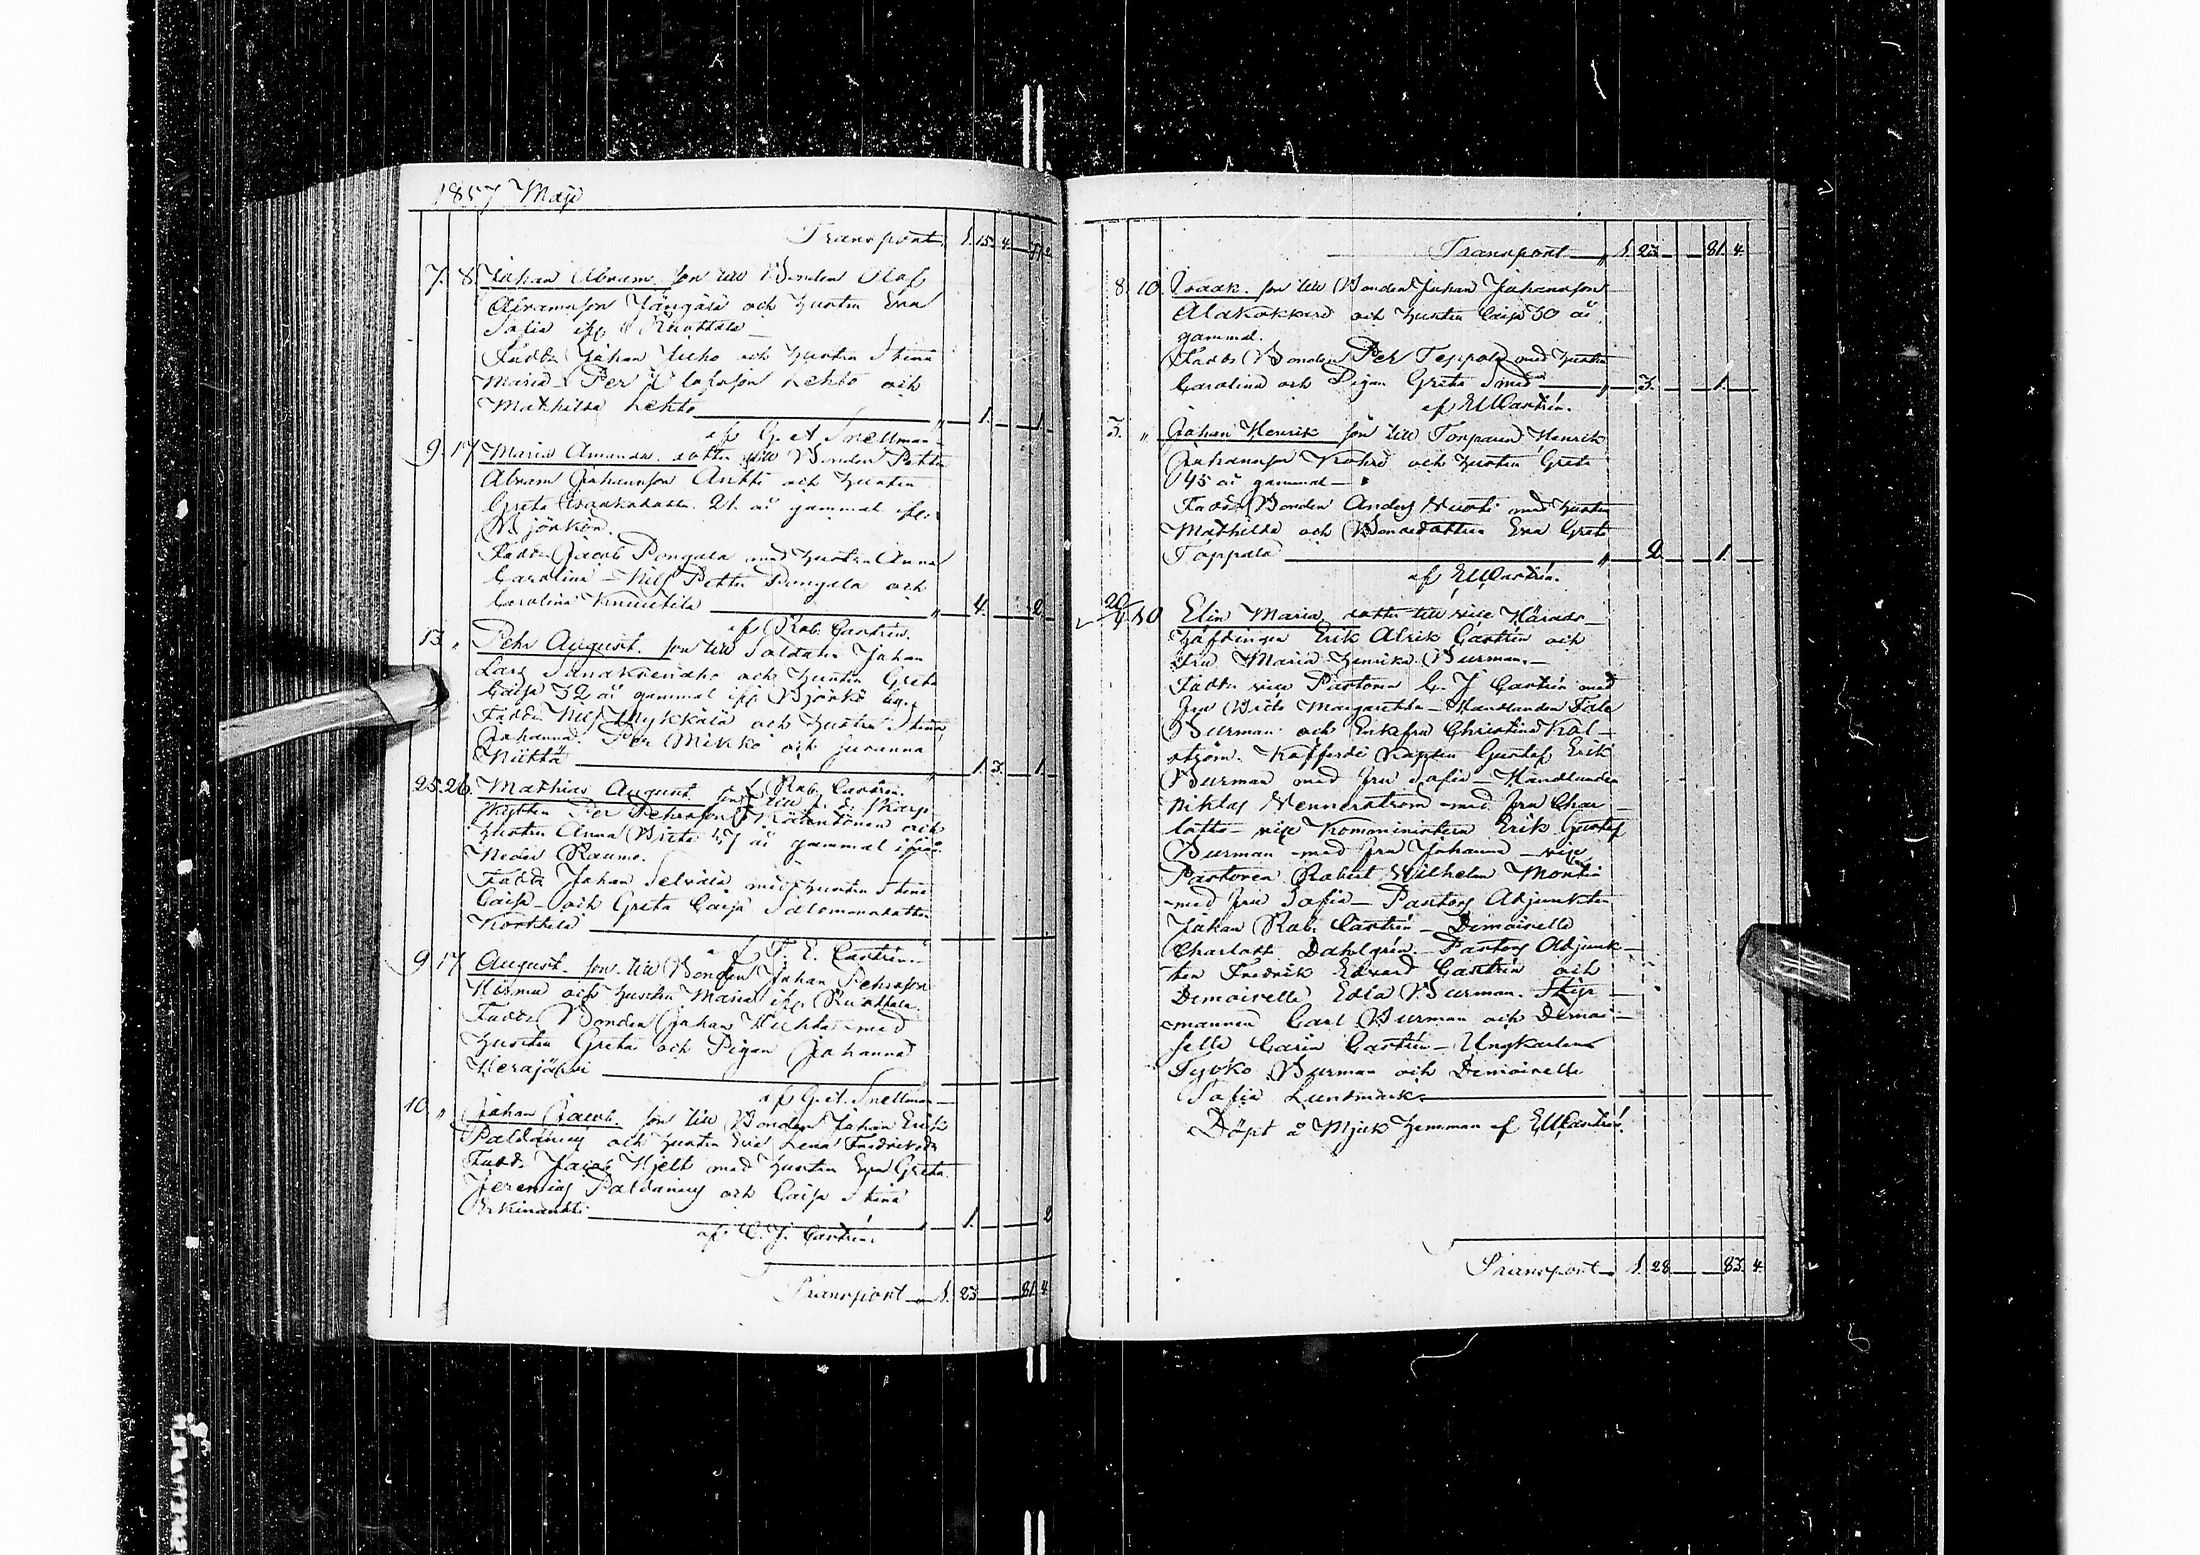 1857 Maji
Transport 1. 15. 4.
7. 8. Johan Abram. son till Bonden Olof
Abramsson Jängälä och hustru Eva
Sofia
Faddr Johan Lieho och hustru Stina
Maria - Per Olofsson Lehto och
Mathilda Lehto 1. 1.
af G. A. Snellman
9. 17 Maria Amanda. dotter till Bonden Petter
Abram Johansson Antti och hustru
Greta Isaaksdotter. 21. år gammal
Björkön.
Faddr Jacob Pongala med hustru Anna
Carolina - Nils Petter Pongala och
Carolina Knuutila 4. 2
af Rob. Castrén.
13. " Pehr August. son till Soldaten Johan
Lars och hustru Greta
Caisa 32 år gammal Björkö
Faddr Nils Mykkälä och hustru Stina
Johanna. Per Mikko och Juvanna
Niittä 1. 3. 1.
af Rob. Castrén.
25. 26. Mathias August. son till
Per Pehrsson och
hustru Anna Brita 47 år gammal
Neder Raumo.
Faddr Johan Selvälä med hustru Stina
Caisa - och Greta Caisa Salomonsdotter
Korkkala
af F. E. Castrén
9 17 August. son till Bonden Johan Pehrsson
och hustru Maria
Faddr Bonden Johan med
hustru Greta och Pigan Johanna
Kerajärvi
af G. A. Snellman
10. " Johan Jacob. son till Bonden Johan Erik
Paldanius och hustru Eva Lena Fredriksdr
Faddr Jacob Hjelt med hustru Eva Greta
Jeremias Paldanius och Caisa Stina
1. 2
af C. J. Castrén.
Transport 1. 23 81. 4.
Transport " 1. 23 81. 4.
8. 10. Isaak. son till Bonden Johan Johansson
Alakokkare och hustru Caisa 30 år
gammal.
Faddr Bonden Per Teppola med hustru
Carolina och Pigan Greta Smed " 3. 1.
af EUCastrén.
3. " Johan Henrik son till Torparen Henrik
Johansson och hustru Greta
45 år gammal
Faddr Bonden Anders med hustru
Mathilda och Bondedottren Eva Greta
Toppala " 2. 1.
af EUCastrén.
20/4 10 Elin Maria dotter till vice Härads-
höfdingen Erik Ulrik Castrén och
Fru Maria Henrika Burman.
Faddr vice Pastoren C. J. Castrén med
Fru Brita Margaretha - Handlanden
Burman och Enkefru Christina Kal-
ström. Kofferdi Kapten Gustaf Erik
Burman med Fru Sofia - Handlanden
Niklas Wennerström med Fru Char-
lotta - vice Komministern Erik Gustaf
Burman med Fru Johanna - vice
Pastoren Robert Wilhelm Montin
med Fru Sofia - Pastors Adjunkten
Johan Rob. Castrén - Demoiselle
Charlott Dahlgrén Pastors Adjunk-
ten Fredrik Edvard Castrén och
Demoiselle Edla Burman. Styr-
mannen Carl Burman och Demoi-
selle Carin Castrén - Ungkarlen
Tycko Burman och Demoiselle
Sofia Lundmark
Döpt å Mjuk hemman af EUCastrén.
Transport 1. 28 83. 4.